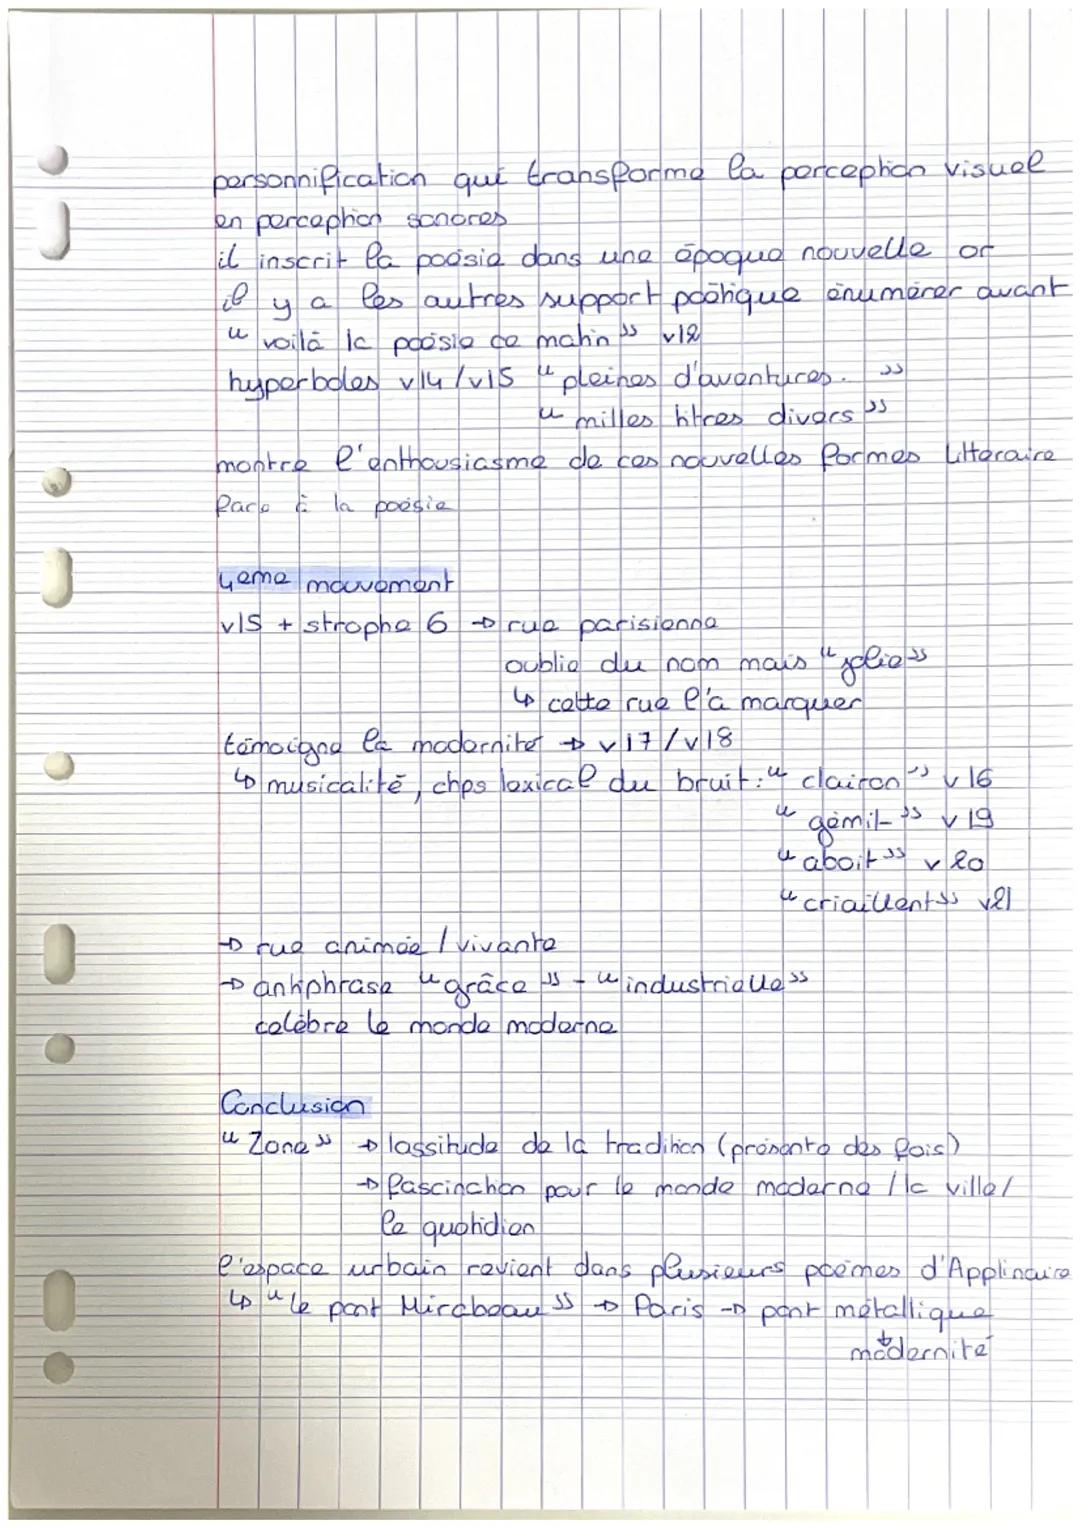 personnification qui transforme la perception visuel
en perception sonores
il inscrit la poésie dans une époque nouvelle or
il y a les autres support poétique énumérer avant
"voilà la poésie ce matin" v12
hyperboles v14/v15 "pleines d'aventures."
"milles titres divers"
montre l'enthousiasme de ces nouvelles formes litteraire
face à la poésie
4eme mouvement
v15 + strophe 6 → rue parisienne
oublie du nom mais "jolie"
↳ cette rue l'a marquer
témoigne la modernité → v17/v18
↳ musicalité, chps lexical du bruit: "clairon" v16
"gémit" v19
"aboit" v20
"criaillent" v21
→ rue animée / vivante
→ antiphrase "grâce" - "industrielle"
célèbre le monde moderne
Conclusion
"Zone" → lassitude de la tradition (présente des fois)
→ fascination pour le monde moderne / la ville/
le quotidien
l'espace urbain revient dans plusieurs poèmes d'Applinaire
↳ "le pont Mirabeau" → Paris → pont métallique
↓
modernité